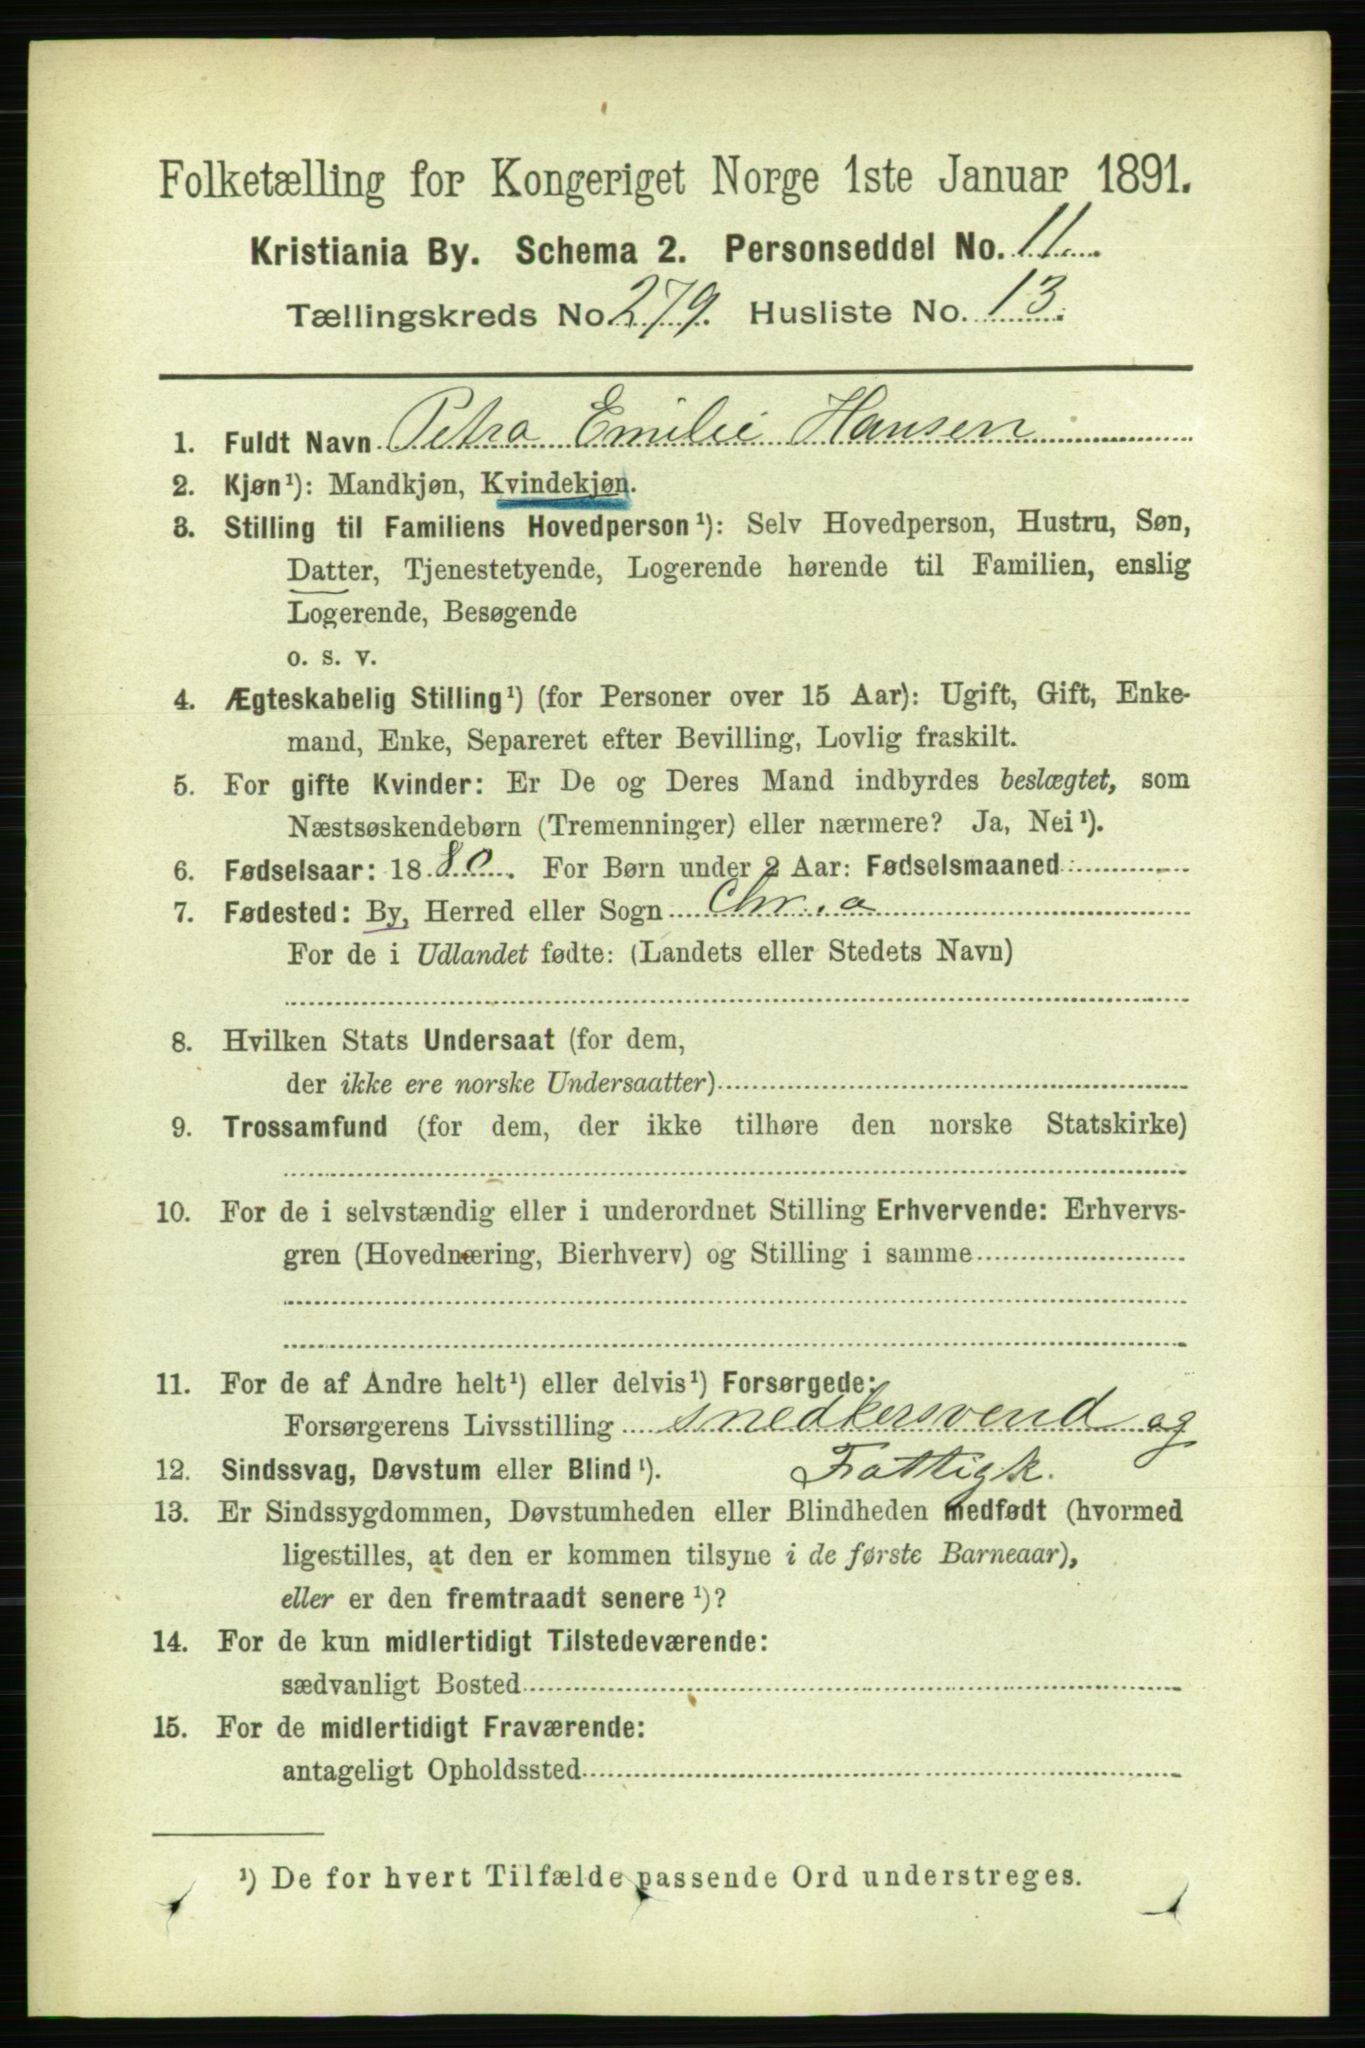 Folketælling for Kongeriget Norge 1ste Januar 1891.
Kristiania By. Schema 2. Personseddel No. 11
Tællingskreds No. 279. Husliste No. 13.
1. Fuldt Navn Petra Emilie Hansen
2. Kjøn¹): Mandkjøn, Kvindekjøn.
3. Stilling til Familiens Hovedperson¹): Selv Hovedperson, Hustru, Søn,
Datter, Tjenestetyende, Logerende hørende til Familien, enslig
Logerende, Besøgende
o. s. v.
4. Ægteskabelig Stilling¹) (for Personer over 15 Aar): Ugift, Gift, Enke-
mand, Enke, Separeret efter Bevilling, Lovlig fraskilt.
5. For gifte Kvinder: Er De og Deres Mand indbyrdes beslægtet, som
Næstsøskendebørn (Tremenninger) eller nærmere? Ja, Nei¹).
6. Fødselsaar: 1880. For Børn under 2 Aar: Fødselsmaaned
7. Fødested: By, Herred eller Sogn Chr.a
For de i Udlandet fødte: (Landets eller Stedets Navn)
8. Hvilken Stats Undersaat (for dem,
der ikke ere norske Undersaatter)
9. Trossamfund (for dem, der ikke tilhøre den norske Statskirke)
10. For de i selvstændig eller i underordnet Stilling Erhvervende: Erhvervs-
gren (Hovednæring, Bierhverv) og Stilling i samme
11. For de af Andre helt¹) eller delvis¹) Forsørgede:
Forsørgerens Livsstilling snedkersvend og
12. Sindssvag, Døvstum eller Blind¹). Fattigk.
13. Er Sindssygdommen, Døvstumheden eller Blindheden medfødt (hvormed
ligestilles, at den er kommen tilsyne i de første Barneaar),
eller er den fremtraadt senere¹)?
14. For de kun midlertidigt Tilstedeværende:
sædvanligt Bosted
15. For de midlertidigt Fraværende:
antageligt Opholdssted
¹) De for hvert Tilfælde passende Ord understreges.